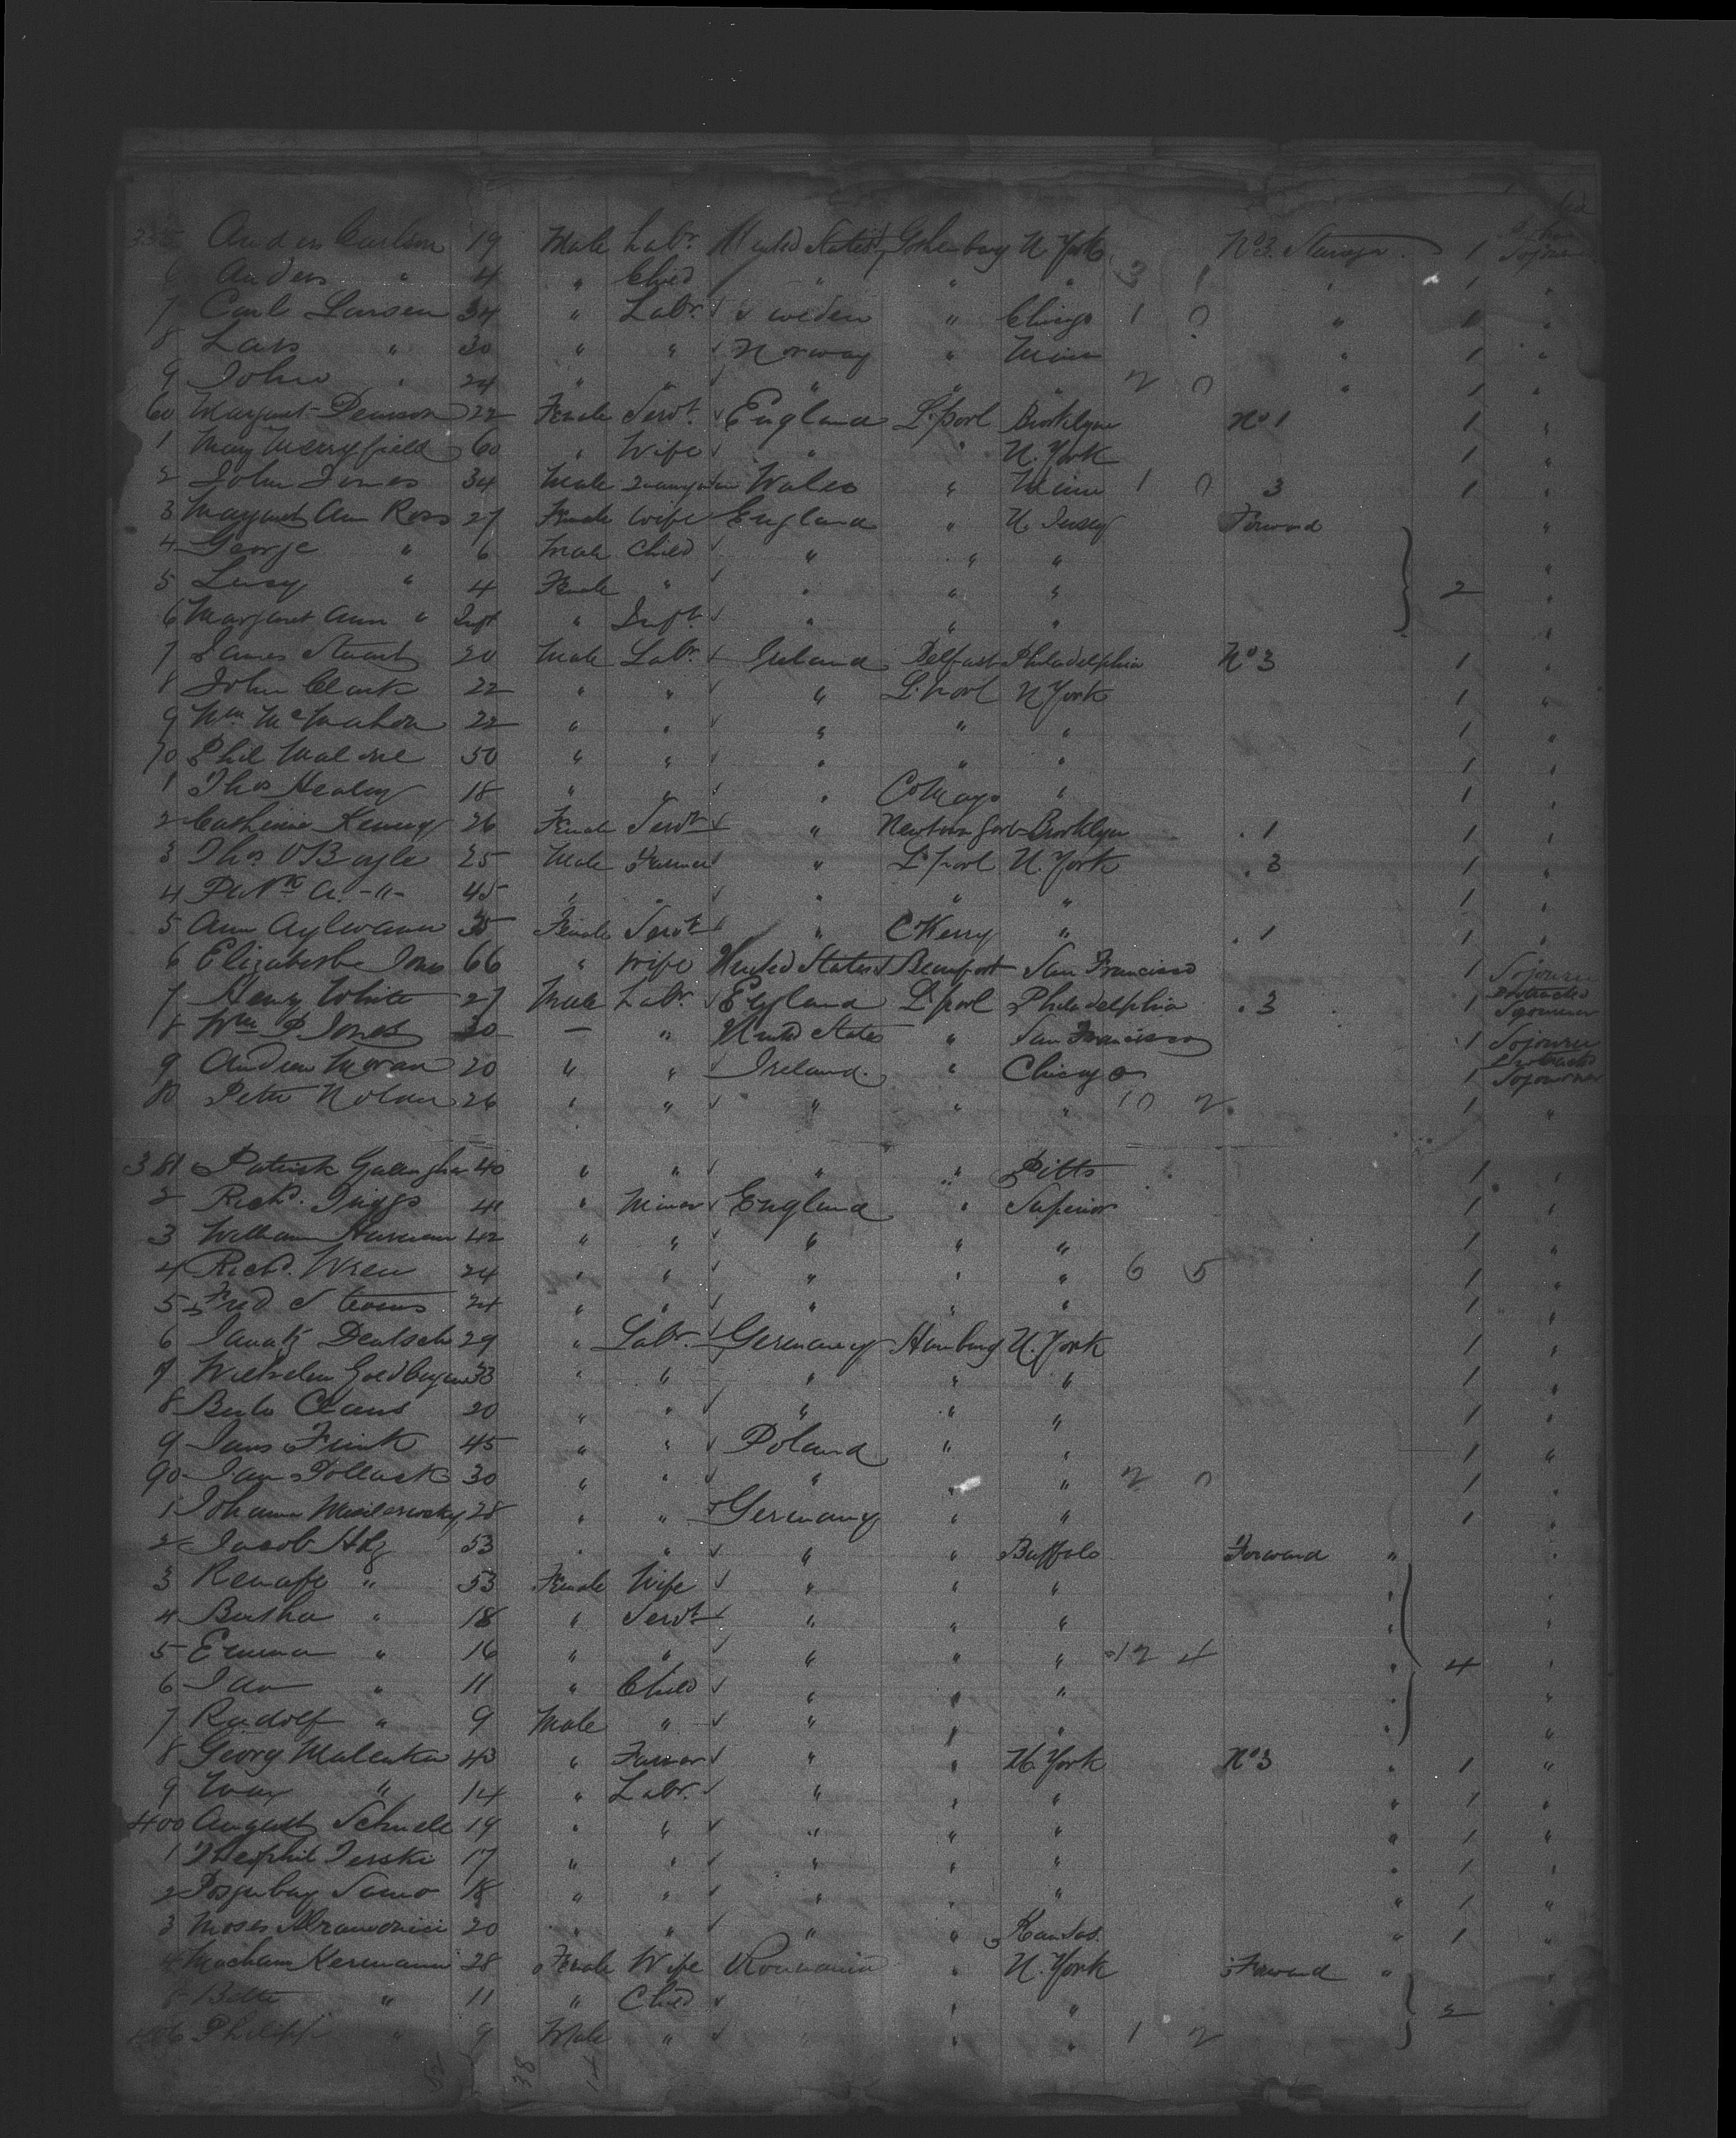 355 Anders Carlson 19 Male Labr. United States Gothenburg N. York No 3. Steerage 1 Sojourn
6 Anders " 4 " Child " " " 3 1 " 1 "
7 Carl Larsen 34 " Labr. Sweden " Chicago 1 0 " 1 "
8 Lars " 30 " " Norway " Minn " 1 "
9 John " 24 " " " " " 2 0 " 1 "
60 Margaret Denison 22 Female Servt. England L.pool Brooklyn No 1 1 "
1 Mary Merryfield 60 " Wife " " N. York 1 "
2 John Jones 34 Male Wales " Minn 1 0 3 1 "
3 Margaret Ann Ross 27 Female Wife England " N. Jersey Forward "
4 George " 6 Male Child " " " "
5 Lucy " 4 Female " " " " 2 "
6 Margaret Ann " Inft " Inft. " " " "
7 James Stuart 20 Male Labr. Ireland Belfast Philadelphia No 3 1 "
8 John Clark 22 " " " L.pool N York 1 "
9 Wm. McMahon 22 " " " " " 1 "
70 Phil Malone 50 " " " " " 1 "
1 Thos Healey 18 " " " Co Mayo " 1 "
2 Catherine Kenny 26 Female Servt " Brooklyn . 1 1 "
3 Thos O'Boyle 25 Male Farmer " L.pool N. York . 3 1 "
4 A. -"- 45 " " " " " 1 "
5 Ann Aylwann 35 Female Servt " Co Kerry " . 1 1 "
6 Elizabeth Jones 66 " Wife United States Beaufort San Francisco 1 Sojourn
7 Henry White 27 Male Labr. England L.pool Philadelphia . 3 1 Protracted Sojourner
8 Wm. P. Jones 30 — " United States " San Francisco 1 Sojourn
9 Andrew Moran 20 " " Ireland. " Chicago 1 Protracted Sojourner
80 Peter Nolan 26 " " " " " 10 2 1 "
381 Patrick Gallagher 40 " " " " Pitts 1 "
2 Richd. Triggs 41 " Miner England " Superior 1 "
3 William Harman 42 " " " " " 1 "
4 Richd. Wren 24 " " " " " 6 5 1 "
5 Fred Stevens 24 " " " " " 1 "
6 Ignatz Deutsch 29 " Labr. Germany Hamburg N. York 1 "
7 Wilhelm 33 " " " " " 1 "
8 Claus 20 " " " " " 1 "
9 Fink 45 " " Poland " " 1 "
90 Jan Pollack 30 " " " " " 2 0 1 "
1 Johann 28 " " Germany " " 1 "
2 Jacob 53 " " " " Buffalo Forward " "
3 " 53 Female Wife " " " " "
4 Bertha " 18 " Servt " " " " "
5 Emma " 16 " " " " " 12 4 " 4 "
6 Ida " 11 " Child " " " " "
7 Rudolf " 9 Male " " " " " "
8 Georg Malenka 43 " Farmer " " N. York No 3 " 1 "
9 Max " 14 " Labr. " " " " 1 "
400 August Schnell 19 " " " " " " 1 "
1 Theophil Terski 17 " " " " " " 1 "
2 18 " " " " " " 1 "
3 Moses Abramovici 20 " " " " Kansas. " 1 "
4 Kermann 28 Female Wife Roumania " N. York Forward " "
5 Bette " 11 " Child " " " 2 "
406 Philipp " 9 Male " " " " 1 2
52 38 14